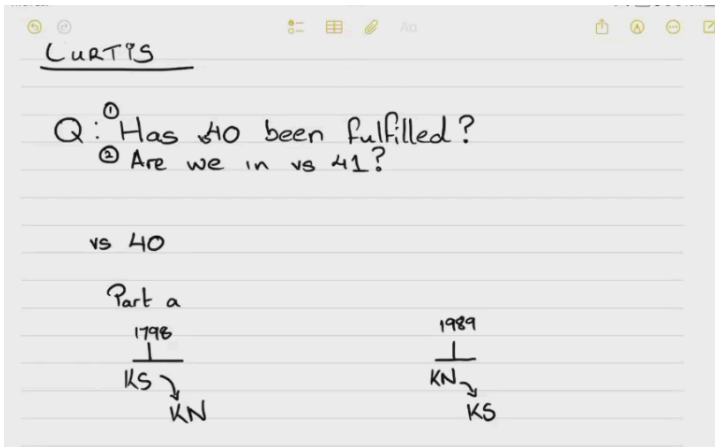 CURTIS
Q: ① Has v40 been fulfilled?
② Are we in vs 41?
vs 40
Part a
1798
1989
KS
KN
KN
KS